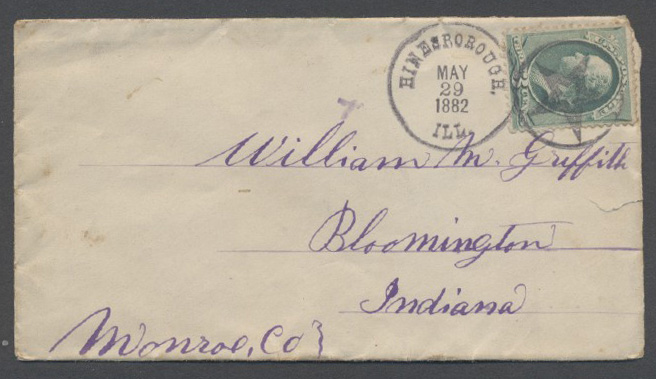 HINESBOROUGH,
MAY
29
1882
ILL.
William M. Griffith
Bloomington
Indiana
Monroe, Co}